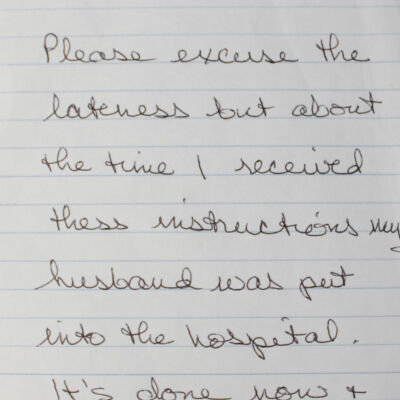 Please excuse the
lateness but about
the time I received
thess instructions my
husband was put
into the hospital.
It's done now +